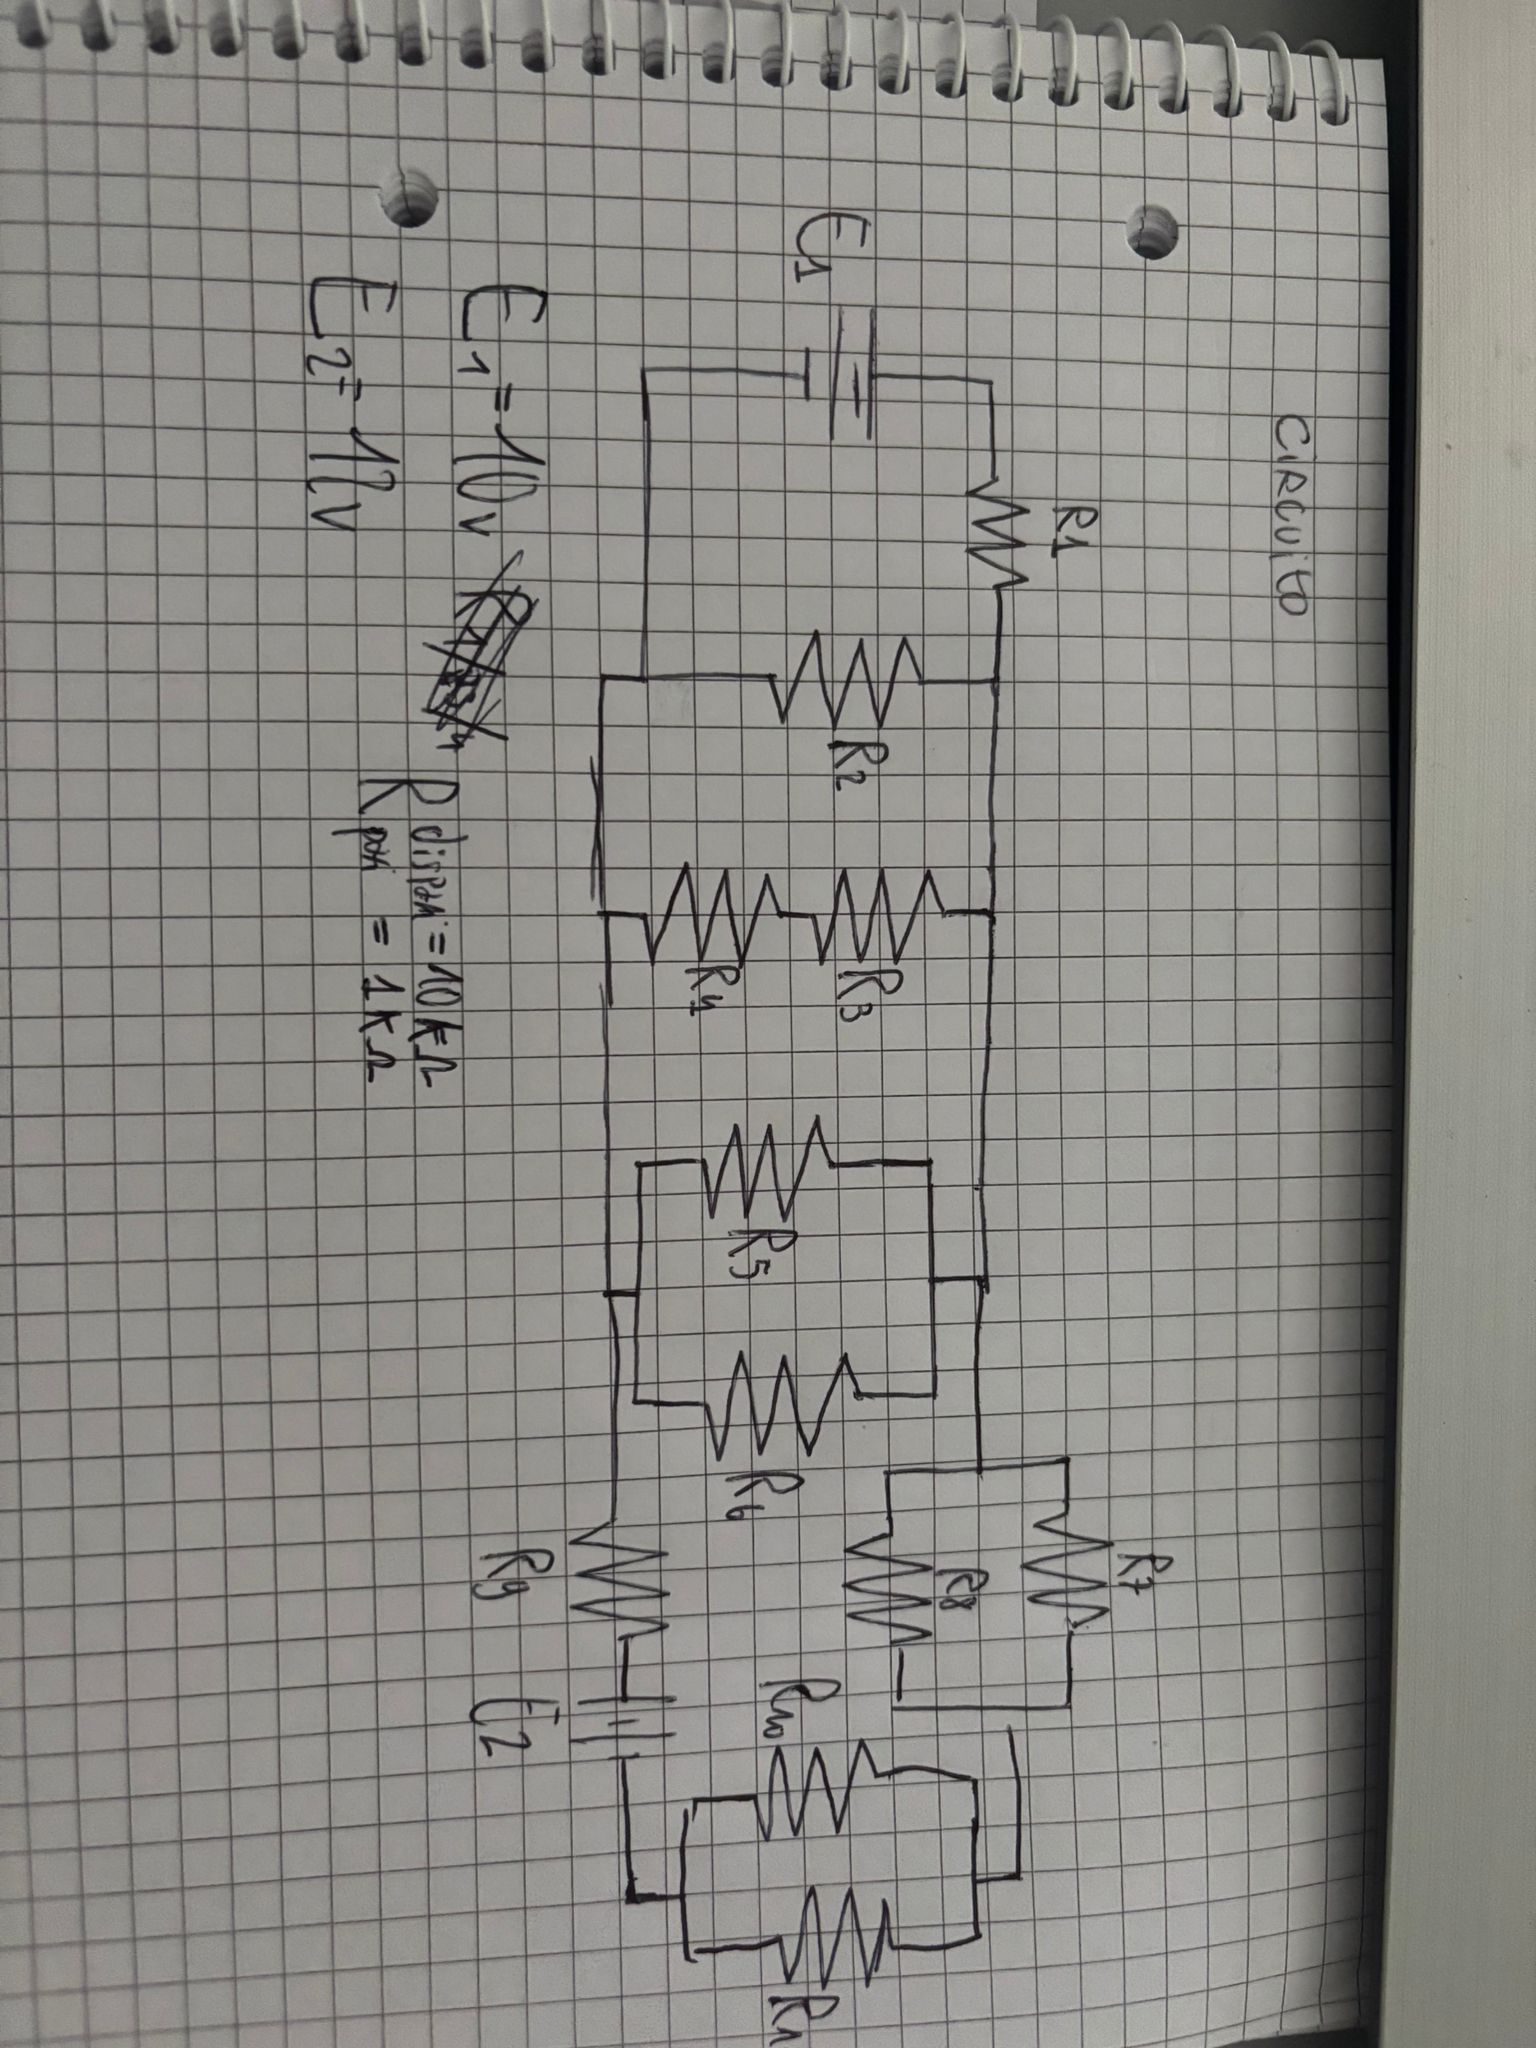 CiRCUito
R1
E1
R2
R3
R4
R5
R6
R7
R8
R9
E2
R10
R1
E1 = 10v
E2 = 12v
R dispari = 10kΩ
R pari = 1kΩ